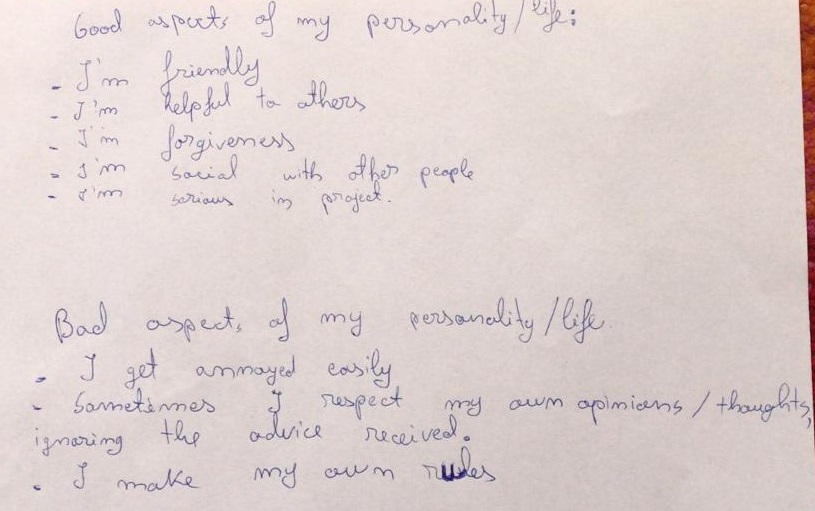 Good aspects of my personality/life:
- I'm friendly
- I'm helpful to others
- I'm forgiveness
- I'm social with other people
- I'm serious in project.
Bad aspects of my personality/life.
- I get annoyed easily
- Sometimes I respect my own opinions/thoughts,
ignoring the advice received.
- I make my own rules